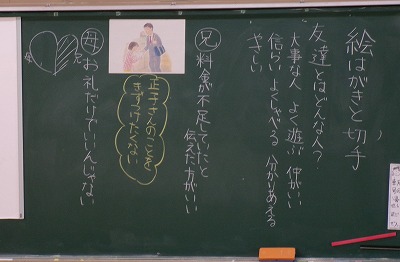 絵はがきと切手
友達とはどんな人?
大事な人 よく遊ぶ 仲がいい
信らい よくしゃべる 分かりあえる
やさしい
兄 料金が不足していたと
伝えた方がいい
正子さんのことを
きずつけたくない
母 お礼だけでいいんじゃない
兄
母